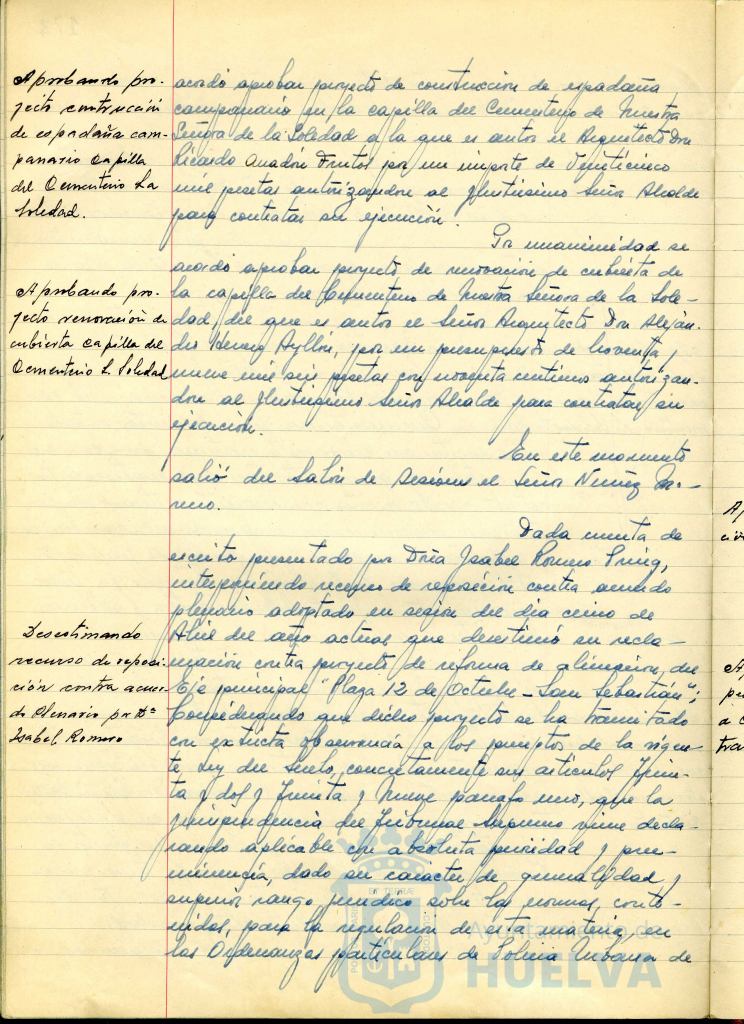 Aprobando pro-
jecto contrucción
de espadaña cam-
panario Capilla
del Cementerio La
Soledad.
acordó aprobar proyecto de construccion de espadaña
campanario en la capilla del Cementerio de Nuestra
Señora de la Soledad a la que es autor el Arquitecto Don
Ricardo Anadón Frutos por un importe de Veinticinco
mil pesetas autorizandose al Ilustrisimo Señor Alcalde
para contratar su ejecución.
Por unanimidad se
acordó aprobar proyecto de renovacion de cubierta de
la capilla del Cementerio de Nuestra Señora de la Sole-
dad, del que es autor el Señor Arquitecto Don Alejan-
dro Herrero Ayllón, por un presupuesto de noventa y
nueve mil seis pesetas con noventa centimos autorizan-
dose al Ilustrisimo Señor Alcalde para contratar su
ejecución.
Aprobando pro-
jecto renovación de
cubierta capilla del
Cementerio L. Soledad
En este momento
salió del Salón de Sesiones el Señor Nuñez Mo-
reno.
Dada cuenta de
escrito presentado por Doña Isabel Romero Puig,
interponiendo recurso de reposición contra acuerdo
plenario adoptado en sesion del dia cinco de
Abril del año actual que desestimó su recla-
mación contra proyecto de reforma de alineacion del
Eje principal "Plaza 12 de Octubre - San Sebastián";
Considerando que dicho proyecto se ha tramitado
con extricta observancia a los preceptos de la vigen-
te Ley del Suelo, concretamente sus articulos Trein-
ta y dos y Treinta y Nueve parrafo uno, que la
jurisprudencia del Tribunal Supremo viene decla-
rando aplicable con absoluta prioridad y pree-
minencia, dado su carácter de generalidad y
superior rango juridico sobre las normas, conte-
nidas, para la regulacion de esta materia, en
las Ordenanzas particulares de Policia Urbana de
Desestimando
recurso de reposi-
ción contra acuer-
do Plenario por Dª
Isabel Romero
Ayuntamiento de
HUELVA